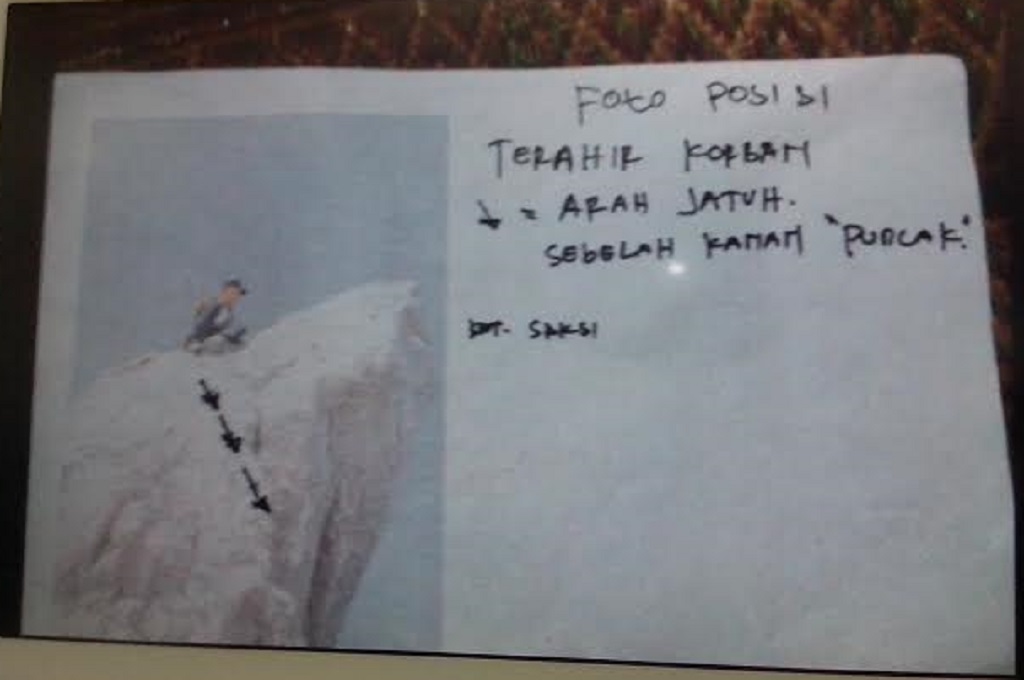 FOTO POSISI
TERAHIR KORBAN
↓ = ARAH JATUH.
SEBELAH KANAN "PUNCAK".
KET. SAKSI